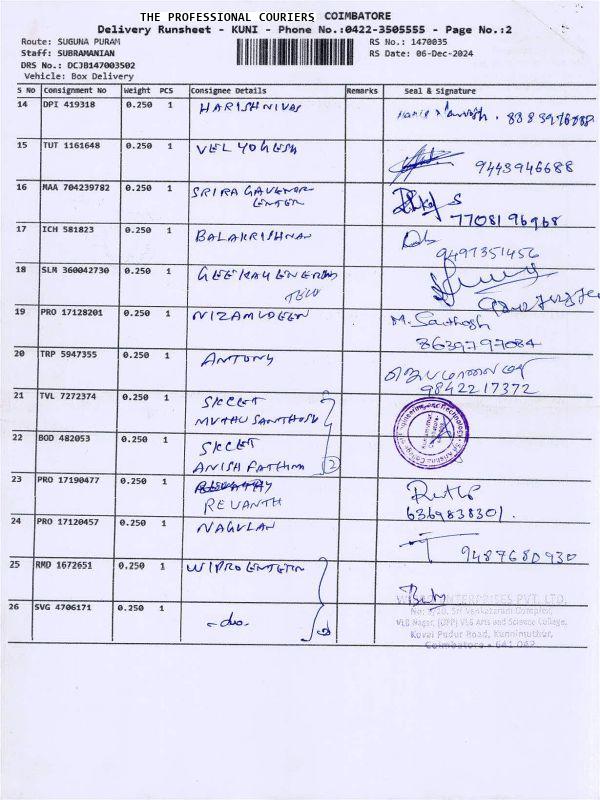 THE PROFESSIONAL COURIERS COIMBATORE
Delivery Runsheet - KUNI - Phone No.:0422-3505555 - Page No.:2
Route: SUGUNA PURAM
RS No.: 1470035
Staff: SUBRAMANIAN
RS Date: 06-Dec-2024
DRS No.: DCJB147003502
Vehicle: Box Delivery
S No Consignment No Weight PCS Consignee Details Remarks Seal & Signature
14 DPI 419318 0.250 1 HARISHNIVAS
15 TUT 1161648 0.250 1 VEL YOGESH 9443946688
16 MAA 704239782 0.250 1 SRIRAGAVENDR
7708196968
17 ICH 581823 0.250 1 BALAKRISHNAN
9497351456
18 SLM 360042730 0.250 1
19 PRO 17128201 0.250 1 NIZAMUDEEN M. Santhosh
8639797084
20 TRP 5947355 0.250 1 ANTONY
9842217372
21 TVL 7272374 0.250 1 SKCET
MUTHU SANTHOSH
22 BOD 482053 0.250 1 SKCET
ANISH FATHIMA 2
23 PRO 17190477 0.250 1
REVANTH
6369838301.
24 PRO 17120457 0.250 1 NAGULAN
9487680930
25 RMD 1672651 0.250 1 WIPRO
ENTERPRISES PVT. LTD.
26 SVG 4706171 0.250 1 -do-
Sri Venkataram Complex,
VLB Nagar, (OPP) VLB Arts and Science College,
Kovai Pudur Road, Kunnimuthur,
Coimbatore - 641 042